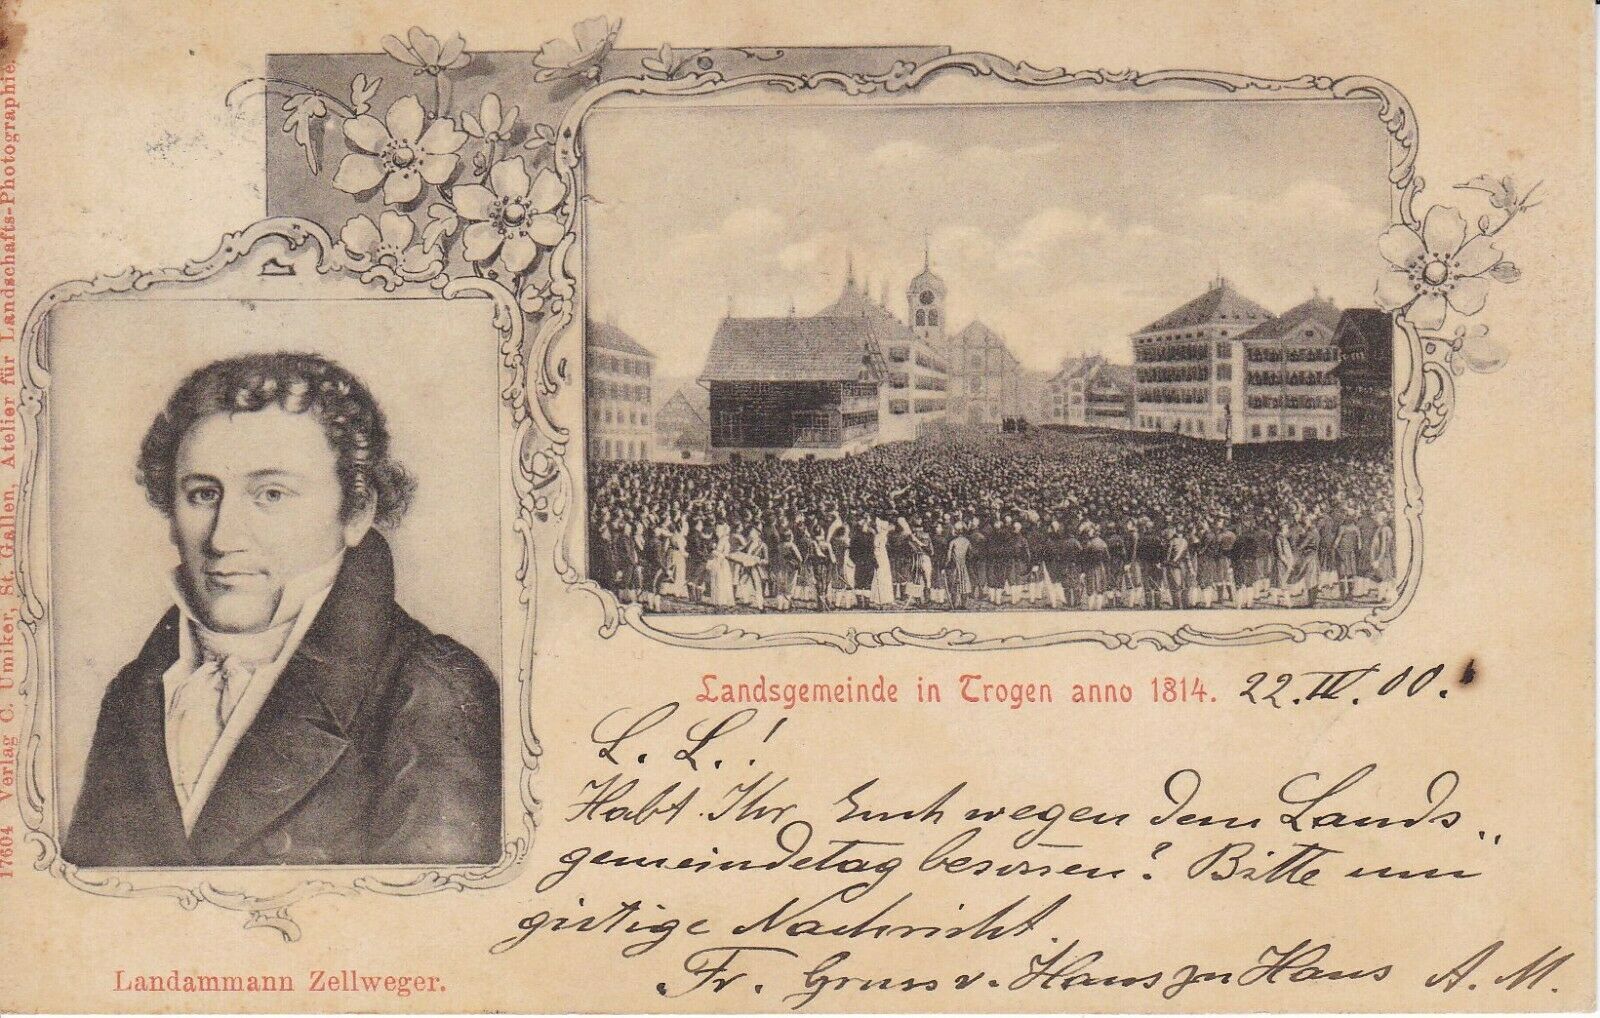 17604 Verlag C. Umiker, St. Gallen, Atelier für Landschafts-Photographie.
Landsgemeinde in Trogen anno 1814. 22. IV. 00.
L. L.!
Habt Ihr Euch wegen dem Lands
gemeindetag besonnen? Bitte um
gütige Nachricht.
Fr. Gruss v. Haus zu Haus A. M.
Landammann Zellweger.